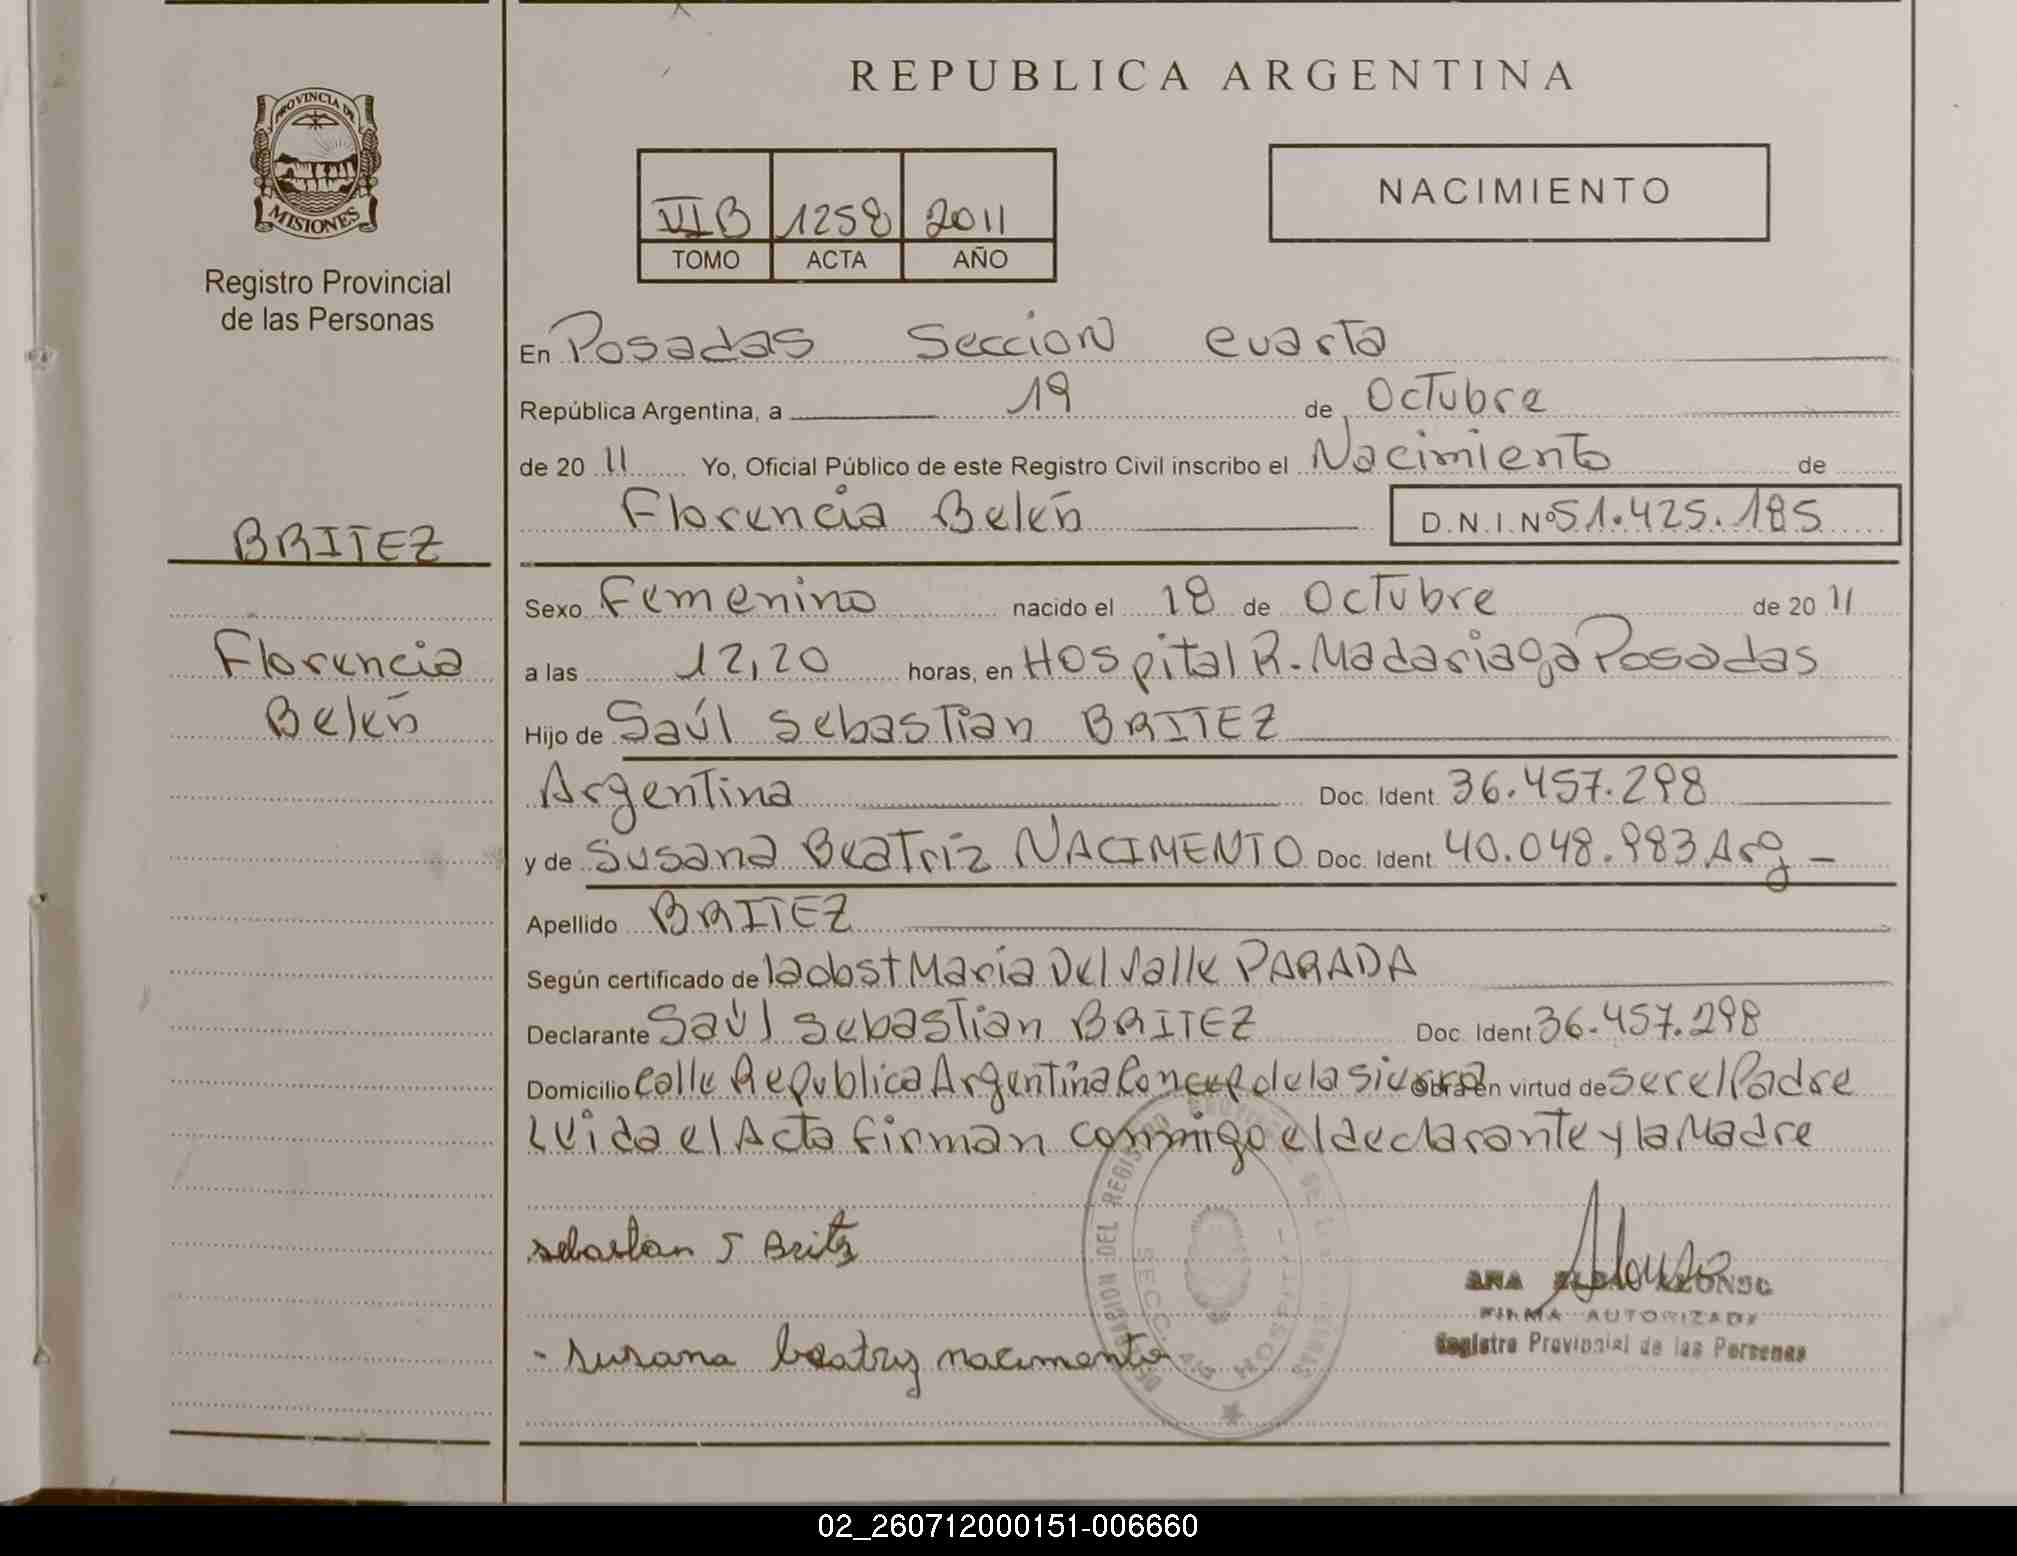 REPUBLICA ARGENTINA
PROVINCIA DE
MISIONES
Registro Provincial
de las Personas
VI B 1258 2011
TOMO ACTA AÑO
NACIMIENTO
En Posadas Seccion cuarta
República Argentina, a 19 de Octubre
de 2011 Yo, Oficial Público de este Registro Civil inscribo el Nacimiento de
Florencia Belén D.N.I.Nº 51.425.185
BRITEZ
Florencia
Belén
Sexo Femenino nacido el 18 de Octubre de 2011
a las 12,20 horas, en Hospital R. Madariaga Posadas
Hijo de Saúl Sebastian BRITEZ
Argentina Doc. Ident. 36.457.298
y de Susana Beatriz NACIMENTO Doc. Ident. 40.048.983 Arg -
Apellido BRITEZ
Según certificado de la obst Maria Del Valle PARADA
Declarante Saúl Sebastian BRITEZ Doc. Ident 36.457.298
Domicilio Calle Republica Argentina Concep de la sierra Obra en virtud de ser el Padre
Leida el Acta firman conmigo el declarante y la Madre
sebastian S Britz
- susana beatriz nacimento
DELEGACION DEL REGISTRO
SECC. 4ta HOSPITAL
Alonso
ANA ALONSO
FIRMA AUTORIZADA
Registro Provincial de las Personas
02_260712000151-006660